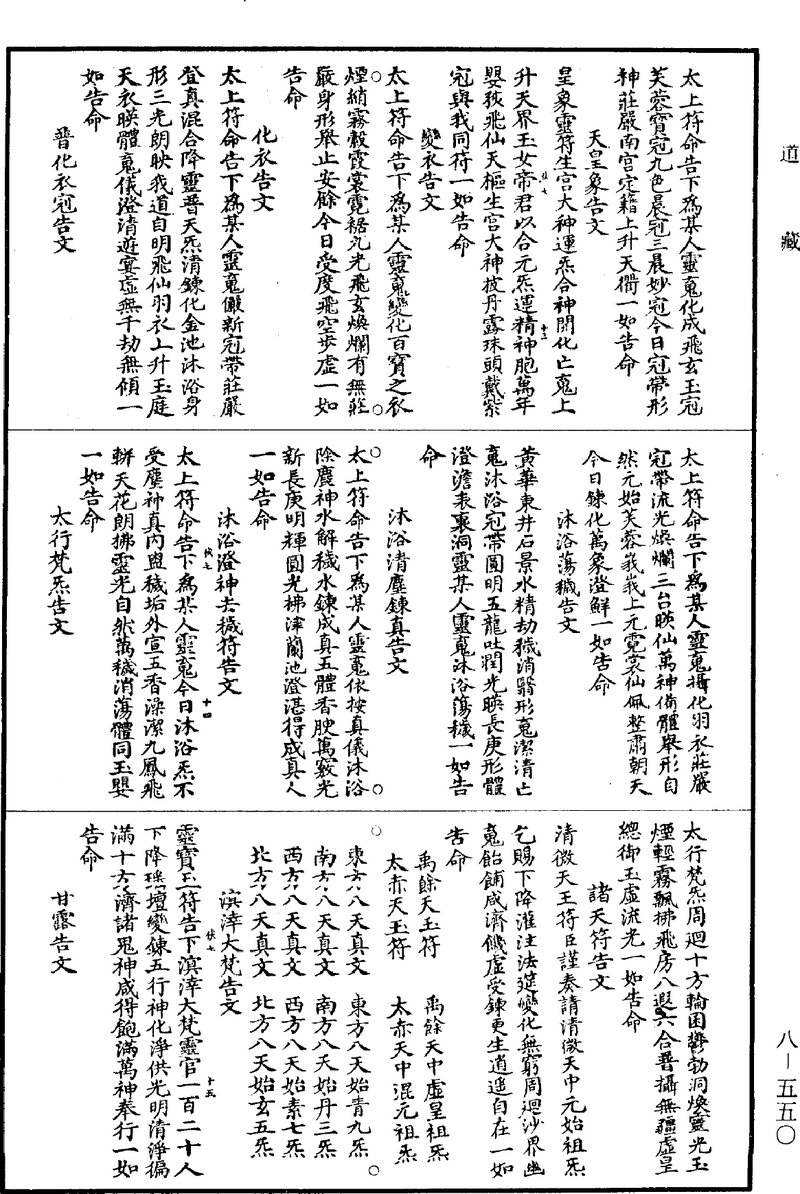 道藏
太上符命告下為某人靈䰟化成飛玄玉冠
芙蓉寶冠九色晨冠三晨妙冠今日冠帶形
神莊嚴南宮定籍上升天衢一如告命
天皇象告文
皇象靈符生宮大神運炁合神開化亡䰟上
升天界玉女帝君以合元炁運精神胞萬年
嬰孩飛仙天樞生宮大神披丹露珠頭戴紫
冠與我同符一如告命
變衣告文
太上符命告下為某人靈䰟變化百寶之衣
煙綃霧縠霞裳霓裾丸光飛玄煥爛有無莊
嚴身形舉止安餘今日受度飛空步虛一如
告命
化衣告文
太上符命告下為某人靈䰟儼新冠帶莊嚴
登真混合降靈普天炁清鍊化金池沐浴身
形三光朗映我道自明飛仙羽衣上升玉庭
天衣暎體䰟儀澄清遊宴虛無千劫無傾一
如告命
普化衣冠告文
太上符命告下為某人靈䰟攝化羽衣莊嚴
冠帶流光煥爛三台暎仙萬神備體舉形自
然元始芙蓉峩峩上元霓裳仙佩整肅朝天
今日鍊化萬象澄鮮一如告命
沐浴蕩穢告文
黃華東井石景水精劫穢消翳形䰟潔清亡
䰟沐浴冠帶圓明五龍吐潤光暎長庚形體
澄澹表裏洞靈某人靈䰟沐浴蕩穢一如告
命
沐浴清塵鍊真告文
太上符命告下為某人靈䰟依按真儀沐浴
除塵神水解穢水鍊成真五體香腴萬竅光
新長庚明輝圓光拂津蘭池澄湛得成真人
一如告命
沐浴澄神去穢符告文
太上符命告下為某人靈䰟今日沐浴炁不
受塵神真內盥穢垢外宣五香澡潔九鳳飛
軿天花朗拂靈光自然萬穢消蕩體同玉嬰
一如告命
太行梵炁告文
太行梵炁周迴十方輪囷鬱勃洞煥靈光玉
煙輕霧飄拂飛房八遐六合普攝無疆虛皇
總御玉虛流光一如告命
諸天符告文
清微天玉符臣謹奏請清微天中元始祖炁
乞賜下降灌注法筵變化無窮周迴沙界幽
䰟飴餔咸濟饑虛受鍊更生逍遥自在一如
告命
禹餘天玉符　禹餘天中虛皇祖炁
太赤天玉符　太赤天中混元祖炁
東方八天真文　東方八天始青九炁
南方八天真文　南方八天始丹三炁
西方八天真文　西方八天始素七炁
北方八天真文　北方八天始玄五炁
溟涬大梵告文
靈寶玉符告下溟涬大梵靈官一百二十人
下降瑤壇變鍊五行神化淨供光明清淨徧
滿十方濟諸鬼神咸得飽滿萬神奉行一如
告命
甘露告文
八－五五〇